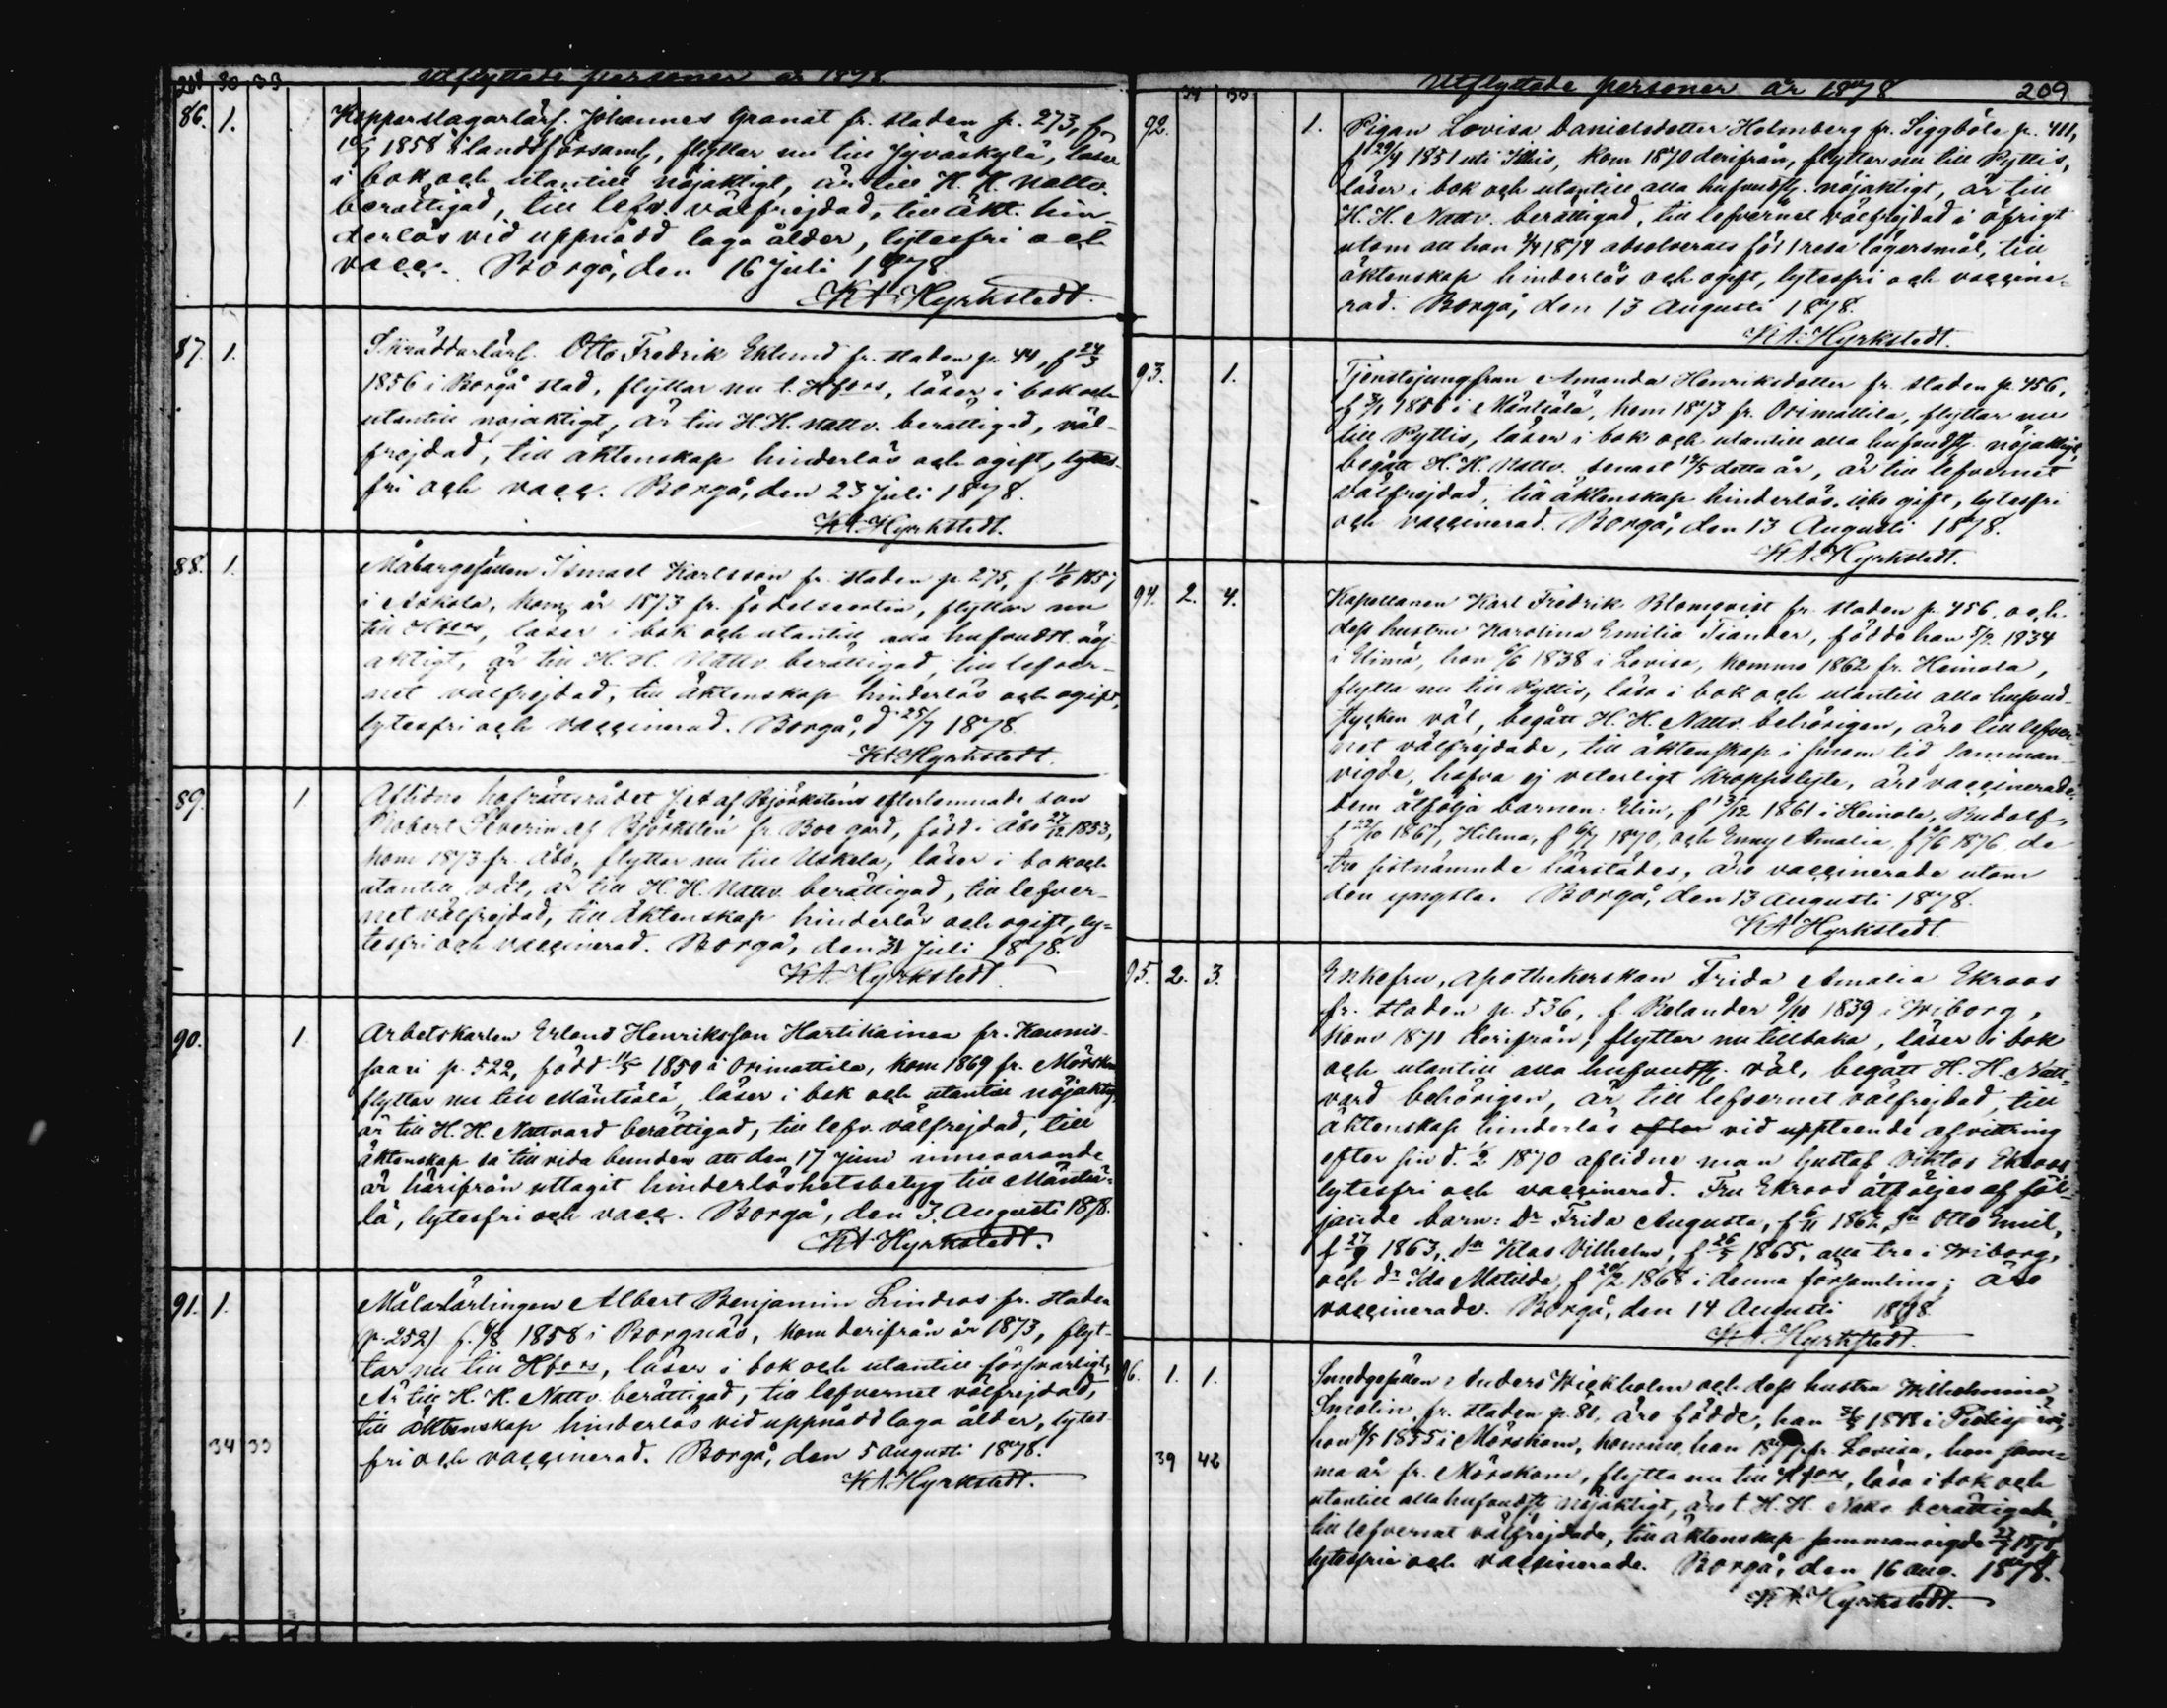 208 30 33 Utflyttade personer år 1878.
86. 1. Kopparslagarlärl. Johannes Granat fr. staden p. 273, f.
1858 i landsförsaml, flyttar nu till Jyväskylä, läser
i bok och utantill nöjaktigt, är till H. H. Nattv.
berättigad, till lefv. välfrejdad, till äkt. hin-
derlös vid uppnådd laga ålder, lytesfri och
vacc. Borgå, den 16 Juli 1878.
KA Hyrkstedt.
87. 1. Skräddarlärl. Otto Fredrik Eklund fr. staden p. 44, f 24/3
1856 i Borgå stad, flyttar nu t. Hfors, läser i bok och
utantill nöjaktigt, är till H.H. Nattv. berättigad, väl-
frejdad, till äktenskap hinderlös och ogift, lytes-
fri och vacc. Borgå, den 23 Juli 1878.
KA Hyrkstedt.
88. 1. Ismael Karlsson fr. staden p. 275, f. 11/6 1857
i Askola, kom år 1873 fr. födelseorten, flyttar nu
till Hfors, läser i bok och utantill alla hufvudst. nöj-
aktigt, är till H. H. Nattv. berättigad, till lefver-
net välfrejdad, till äktenskap hinderlös och ogift,
lytesfri och vaccinerad. Borgå, d. 25/7 1878.
KA Hyrkstedt.
89. 1 Aflidne hofrättsrådet af Björksténs efterlemnade son
Robert Severin af Björkstén fr. Boe gård, född i Åbo 27/12 1853,
kom 1873 fr. Åbo, flyttar nu till Uskela, läser i bok och
utantill väl, är till H. H. Nattv. berättigad, till lefver-
net välfrejdad, till äktenskap hinderlös och ogift, ly-
tesfri och vaccinerad. Borgå, den 31 Juli 1878.
KA Hyrkstedt.
90. 1 Arbetskarlen Erland Henriksson Hartikainen fr. Kaunis-
saari p. 522, född 11/5 1850 i Orimattila, kom 1869 fr. Mörskom
flyttar nu till Mäntsälä, läser i bok och utantill nöjaktigt
är till H. H. Nattvard berättigad, till lefv. välfrejdad, till
äktenskap så till vida bunden att den 17 Juni innevarande
år härifrån uttagit hinderlöshetsbetyg till Mäntsä-
lä, lytesfri och vacc. Borgå, den 3. Augusti 1878.
KA Hyrkstedt.
91. 1. Målarlärlingen Albert Benjamin Lindros fr. staden
(p. 252) f. 1858 i Borgnäs, kom derifrån år 1873, flyt-
tar nu till Hfors, läser i bok och utantill försvarligt,
är till H. H. Nattv. berättigad, till lefvernet välfrejdad,
till äktenskap hinderlös vid uppnådd laga ålder, lytes-
34 33 fri och vaccinerad. Borgå, den 5 Augusti 1878.
KA Hyrkstedt.
34 33 Utflyttade personer år 1878 209
92. 1. Pigan Lovisa Danielsdotter Holmberg fr. Siggböle p. 411,
f 29/4 1851 uti Itis, kom 1870 derifrån, flyttar nu till Pyttis,
läser i bok och utantill alla hufvudst. nöjaktigt, är till
H. H. Nattv. berättigad, till lefvernet välfrejdad i öfrigt
utom att hon 1874 absolverats för 1 resa lägersmål, till
äktenskap hinderlös och ogift, lytesfri och vaccine-
rad. Borgå, den 13 Augusti 1878.
KA Hyrkstedt.
93. 1. Tjenstejungfrun Amanda Henriksdotter fr. staden p. 456,
f 1856 i Mäntsälä, kom 1873 fr. Orimattila, flyttar nu
till Pyttis, läser i bok och utantill alla hufvudst. nöjaktigt,
begått H. H. Nattv. senast detta år, är till lefvernet
välfrejdad, till äktenskap hinderlös, icke gift, lytesfri
och vaccinerad. Borgå, den 13 Augusti 1878.
KA Hyrkstedt.
94. 2. 4. Kapellanen Karl Fredrik Blomqvist fr. staden p. 456, och
dess hustru Karolina Emilia Tiander, födde han 5/2 1834
i Elimä, hon 6/6 1838 i Lovisa, komna 1862 fr. Heinola,
flytta nu till Pyttis, läsa i bok och utantill alla hufvud-
stycken väl, begått H. H. Nattv. behörigen, äro till lefver-
net välfrejdade, till äktenskap i sinom tid samman-
vigde, hafva ej veterligt kroppslyte, äro vaccinerade.
dem åtfölja barnen: Elin, f 13/12 1861 i Heinola, Rudolf,
f 22/10 1867, Hilma, f 6/7 1870, och Enny Amalia, f 1876 de
tre sistnämnde härstädes, äro vaccinerade utom
den yngsta. Borgå, den 13 Augusti 1878.
KA Hyrkstedt.
95. 2. 3. Enkefru, Apothekerskan Frida Amalia Ekroos
fr. staden p. 536, f. Relander 9/10 1839 i Wiborg,
kom 1871 derifrån, flyttar nu tillbaka, läser i bok
och utantill alla hufvudst. väl, begått H. H. Natt-
vard behörigen, är till lefvernet välfrejdad, till
äktenskap hinderlös efter vid uppteende afvittring
efter sin d. 1/2 1870 aflidne man Gustaf Viktor Ekroos
lytesfri och vaccinerad. Fru Ekroos åtföljes af föl-
jande barn: Dr Frida Augusta, f 6/11 1862, Sn Otto Emil,
f 27/9 1863, Sn Klas Vilhelm, f 26/5 1865, alla tre i Wiborg,
och dr Ida Matilda, f 20/2 1868 i denna församling; äro
vaccinerade. Borgå, den 14 Augusti 1878.
KA Hyrkstedt.
96. 1. 1. Smedgesällen Anders Wickholm och dess hustru Wilhelmina
Smolin, fr. staden p. 81, äro födde, han 1848 i
hon 1855 i Mörskom, komna, han fr. Lovisa, hon sam-
39 42 ma år fr. Mörskom, flytta nu till Hfors, läsa i bok och
utantill alla hufvudst. nöjaktigt, äro t. H. H. Nattv. berättigade,
till lefvernet välfrejdade, till äktenskap sammanvigde
lytesfria och vaccinerade. Borgå, den 16 Aug. 1878.
KA Hyrkstedt.